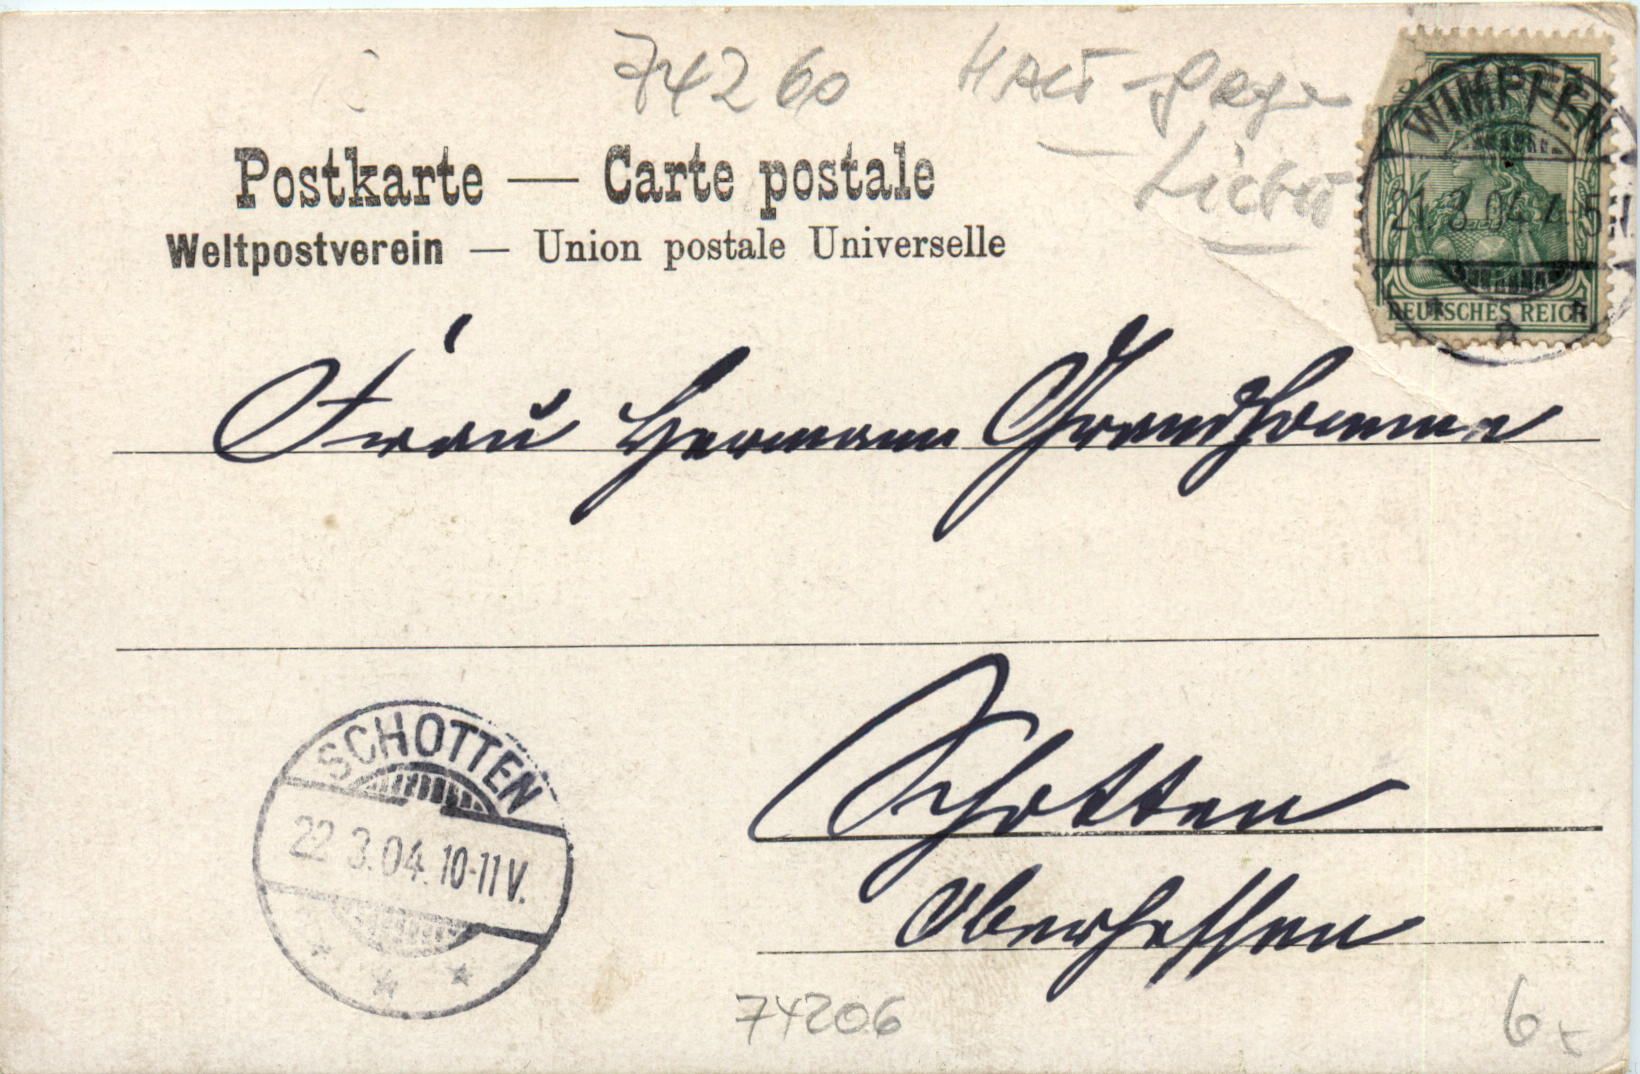 74260
Postkarte — Carte postale
Weltpostverein — Union postale Universelle
WIMPFEN
21.3.04.4-5N
DEUTSCHES REICH
Frau Hermann Grandhomme
Schotten
Oberhessen
SCHOTTEN
22.3.04.10-11V.
74206
6,-